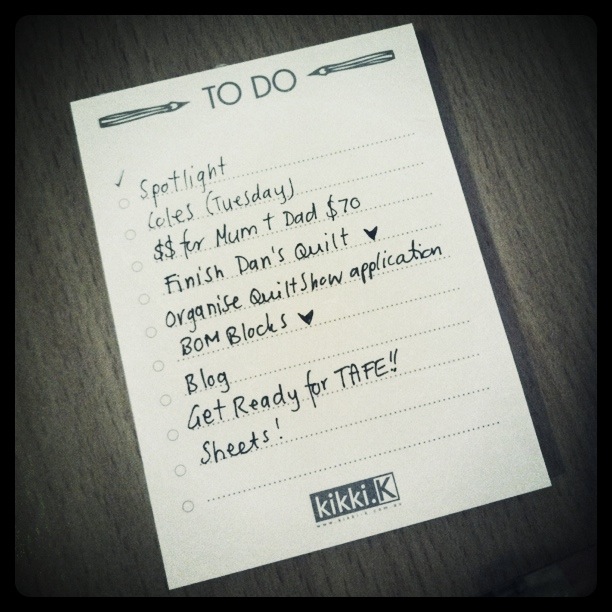 TO DO
✓ Spotlight
Coles (Tuesday)
$$ for Mum + Dad $70
Finish Dan's Quilt ♥
Organise QuiltShow application
BOM Blocks ♥
Blog
Get Ready for TAFE!!
Sheets!
kikki.K
www.kikki-k.com.au